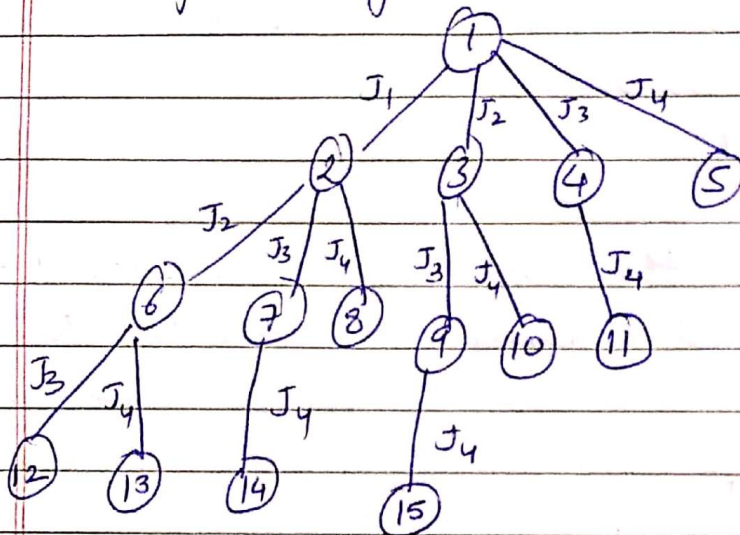 1
J1 J2 J3 J4
2 3 4 5
J2 J3 J4 J3 J4 J4
6 7 8 9 10 11
J3 J4 J4 J4
12 13 14 15